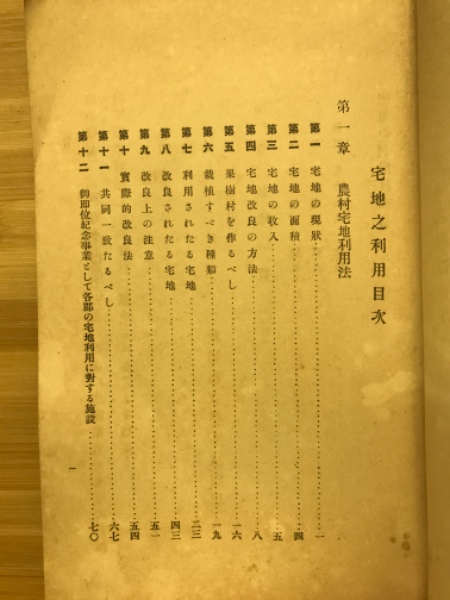 宅地之利用目次
第一章 農村宅地利用法
第一 宅地の現狀……一
第二 宅地の面積……四
第三 宅地の收入……五
第四 宅地改良の方法……八
第五 果樹村を作るべし……一六
第六 栽植すべき種類……一九
第七 利用されたる宅地……二三
第八 改良されたる宅地……四三
第九 改良上の注意……五一
第十 實際的改良法……五四
第十一 共同一致たるべし……六七
第十二 御即位紀念事業として各郡の宅地利用に對する施設……七〇
一